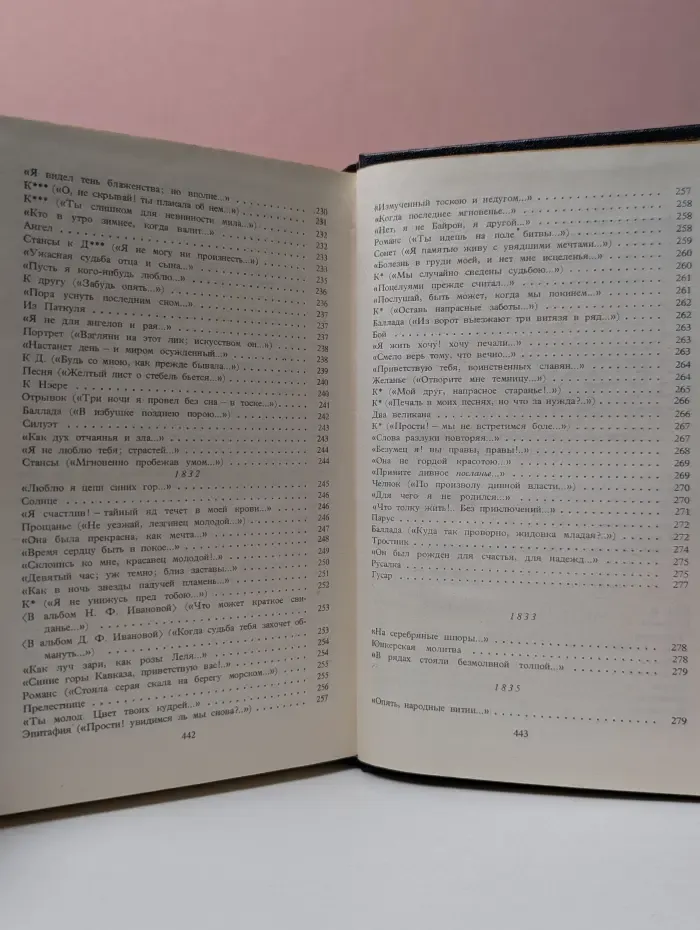 «Я видел тень блаженства; но вполне...» 230
К*** («О, не скрывай! ты плакала об нем...») 231
К*** («Ты слишком для невинности мила...») 232
«Кто в утро зимнее, когда валит...» 232
Ангел 232
Стансы к Д*** («Я не могу ни произнесть...») 233
«Ужасная судьба отца и сына...» 233
«Пусть я кого-нибудь люблю...» 235
К другу («Забудь опять...») 236
«Пора уснуть последним сном...» 236
Из Паткуля 237
«Я не для ангелов и рая...» 237
Портрет («Взгляни на этот лик; искусством он...») 237
«Настанет день – и миром осужденный...» 238
К Д. («Будь со мною, как прежде бывала...») 238
Песня («Желтый лист о стебель бьется...») 239
К Нэере 240
Отрывок («Три ночи я провел без сна – в тоске...») 240
Баллада («В избушке позднею порою...») 241
Силуэт 242
«Как дух отчаянья и зла...» 243
«Я не люблю тебя; страстей...» 243
Стансы («Мгновенно пробежав умом...») 244
1832
«Люблю я цепи синих гор...» 245
Солнце 246
«Я счастлив! – тайный яд течет в моей крови...» 246
Прощанье («Не уезжай, лезгинец молодой...») 246
«Она была прекрасна, как мечта...» 247
«Время сердцу быть в покое...» 248
«Склонись ко мне, красавец молодой!..» 249
«Девятый час; уж темно; близ заставы...» 250
«Как в ночь звезды падучей пламень...» 251
К* («Я не унижусь пред тобою...») 252
〈В альбом Н. Ф. Ивановой〉 («Что может краткое сви-
данье...») 253
〈В альбом Д. Ф. Ивановой〉 («Когда судьба тебя захочет об-
мануть...») 253
«Как луч зари, как розы Леля...» 254
«Синие горы Кавказа, приветствую вас!..» 254
Романс («Стояла серая скала на берегу морском...») 255
Прелестнице 255
«Ты молод. Цвет твоих кудрей...» 256
Эпитафия («Прости! увидимся ль мы снова?..») 257
442
«Измученный тоскою и недугом...» 257
«Когда последнее мгновенье...» 258
«Нет, я не Байрон, я другой...» 258
Романс («Ты идешь на поле битвы...») 258
Сонет («Я памятью живу с увядшими мечтами...») 259
«Болезнь в груди моей, и нет мне исцеленья...» 260
К* («Мы случайно сведены судьбою...») 260
«Поцелуями прежде считал...» 261
«Послушай, быть может, когда мы покинем...» 261
К* («Оставь напрасные заботы...») 262
Баллада («Из ворот выезжают три витязя в ряд...») 262
Бой 263
«Я жить хочу! хочу печали...» 263
«Смело верь тому, что вечно...» 263
«Приветствую тебя, воинственных славян...» 264
Желанье («Отворите мне темницу...») 264
К* («Мой друг, напрасное старанье!..») 265
К* («Печаль в моих песнях, но что за нужда?..») 266
Два великана 266
К* («Прости! – мы не встретимся боле...») 267
«Слова разлуки повторяя...» 267
«Безумец я! вы правы, правы!..» 268
«Она не гордой красотою...» 269
«Примите дивное посланье...» 269
Челнок («По произволу дивной власти...») 270
«Для чего я не родился...» 270
«Что толку жить!.. Без приключений...» 271
Парус 272
Баллада («Куда так проворно, жидовка младая?..») 272
Тростник 274
«Он был рожден для счастья, для надежд...» 275
Русалка 275
Гусар 277
1833
«На серебряные шпоры...» 278
Юнкерская молитва 278
«В рядах стояли безмолвной толпой...» 279
1835
«Опять, народные витии...» 279
443